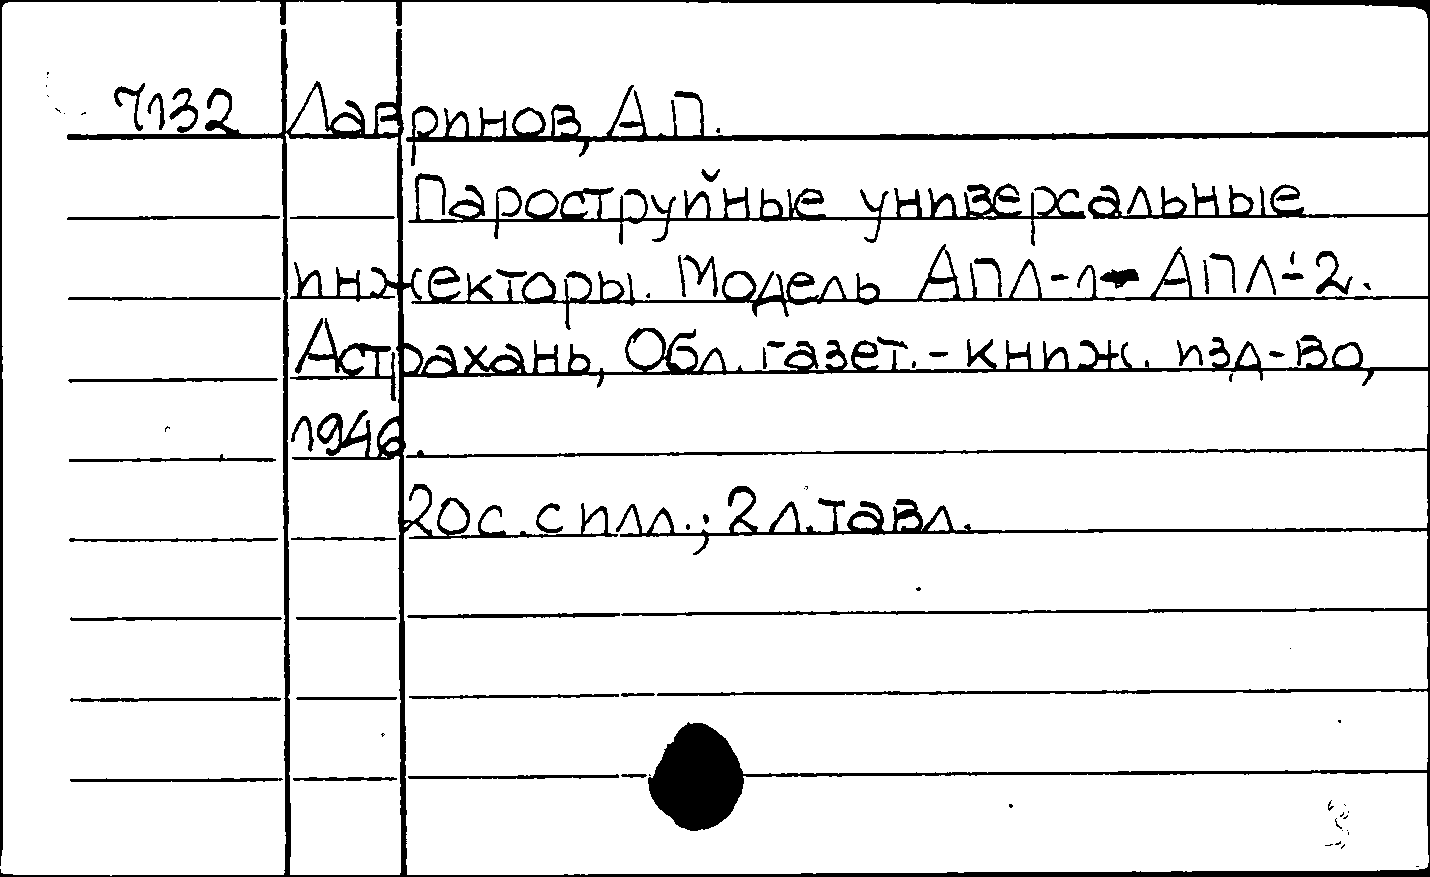 7132 Лавринов, А.П.
Пароструйные универсальные
инжекторы. Модель АПЛ-1-АПЛ-2.
Астрахань, Обл. газет.-книж. изд-во,
1946.
20 с. с илл.; 2 л. табл.
3